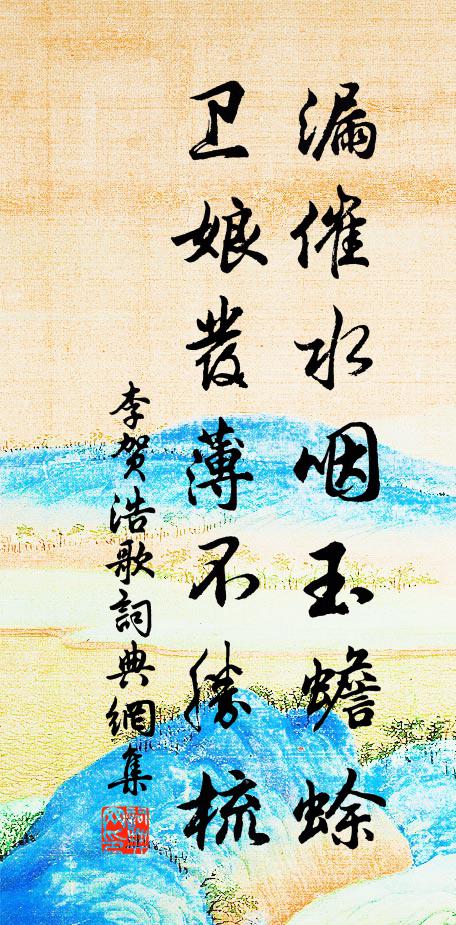 漏催水咽玉蟾蜍
卫娘發薄不勝梳
李贺浩歌詞典網集